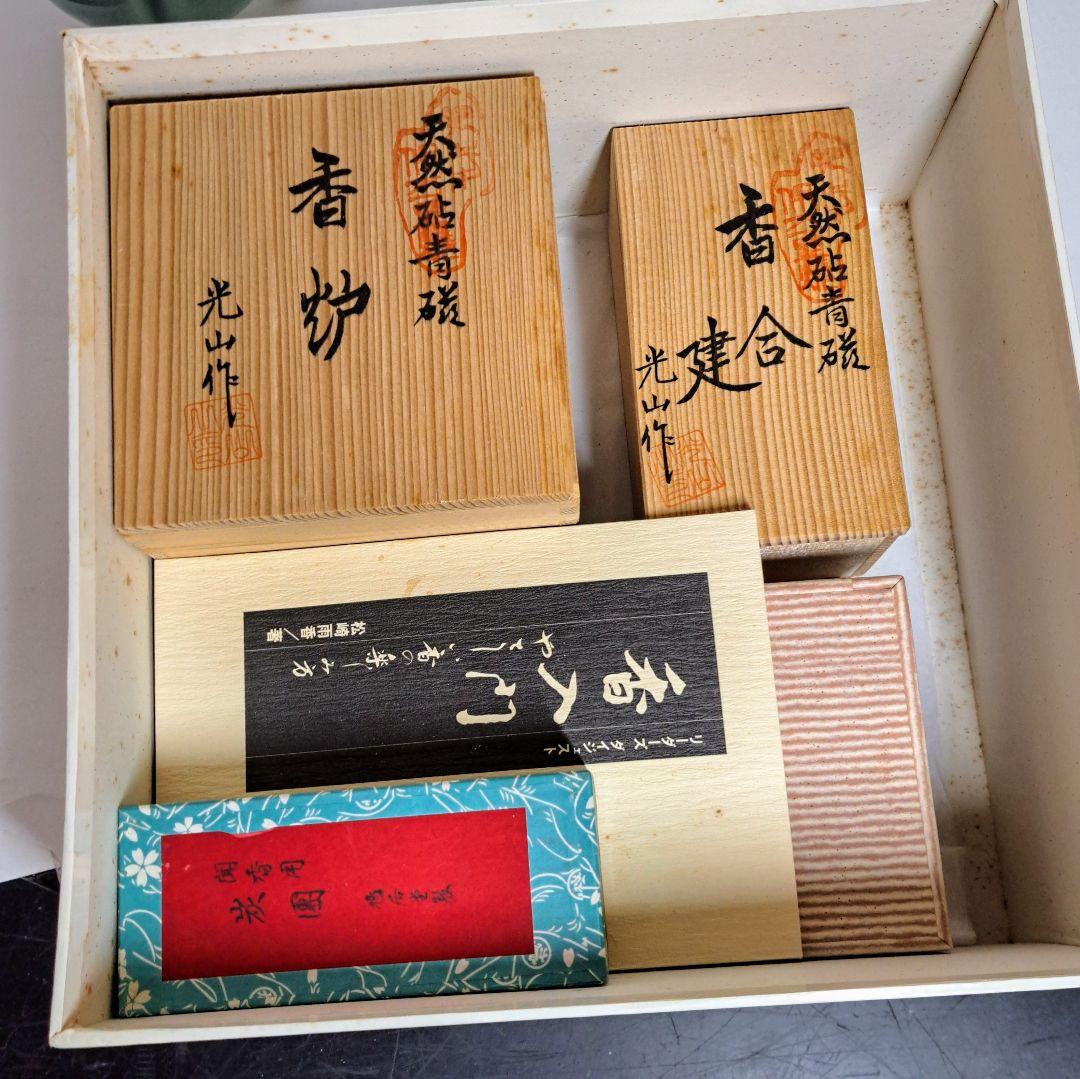 天然砧青磁
香炉
光山作
天然砧青磁
香合
建
光山作
リーダーズ ダイジェスト
香入門
やさしい香の楽しみ方
松崎雨香/著
聞香用
炭團
鳩居堂製